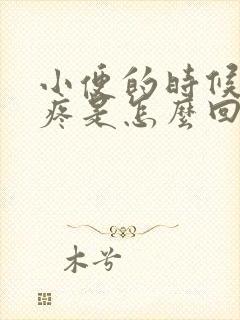 小便的時候
疼是怎麼回
木兮